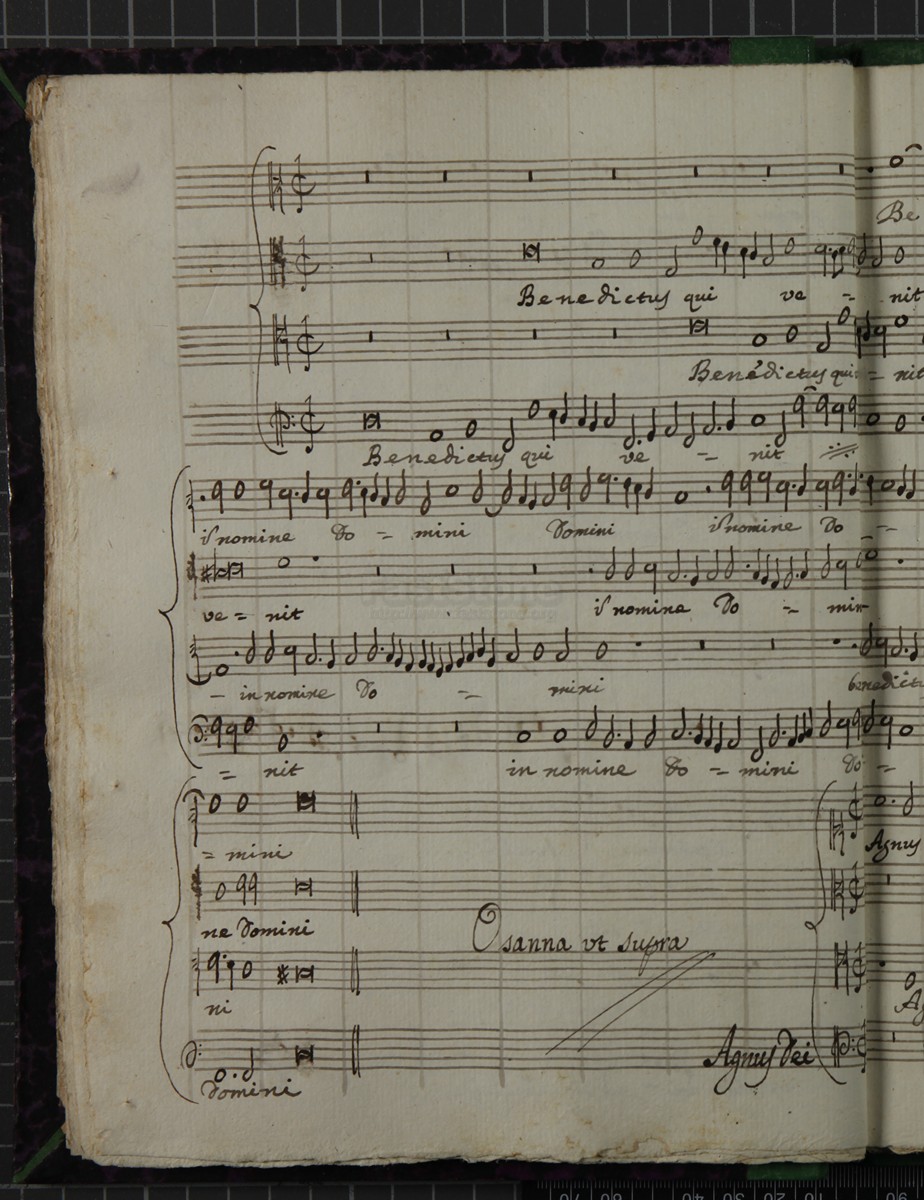 Be
Benedictus qui ve = nit
Benédictus qui = nit
Benedictus qui ve = nit
iñomine Do = mini Domini iñomine Do =
ve = nit iñomine Do = min
in nomine Do = mini benedictu
= nit in nomine Do = mini Do =
= mini
Agnus
ne Domini
Osanna vt supra
ni
Ag
Agnus Dei
Domini